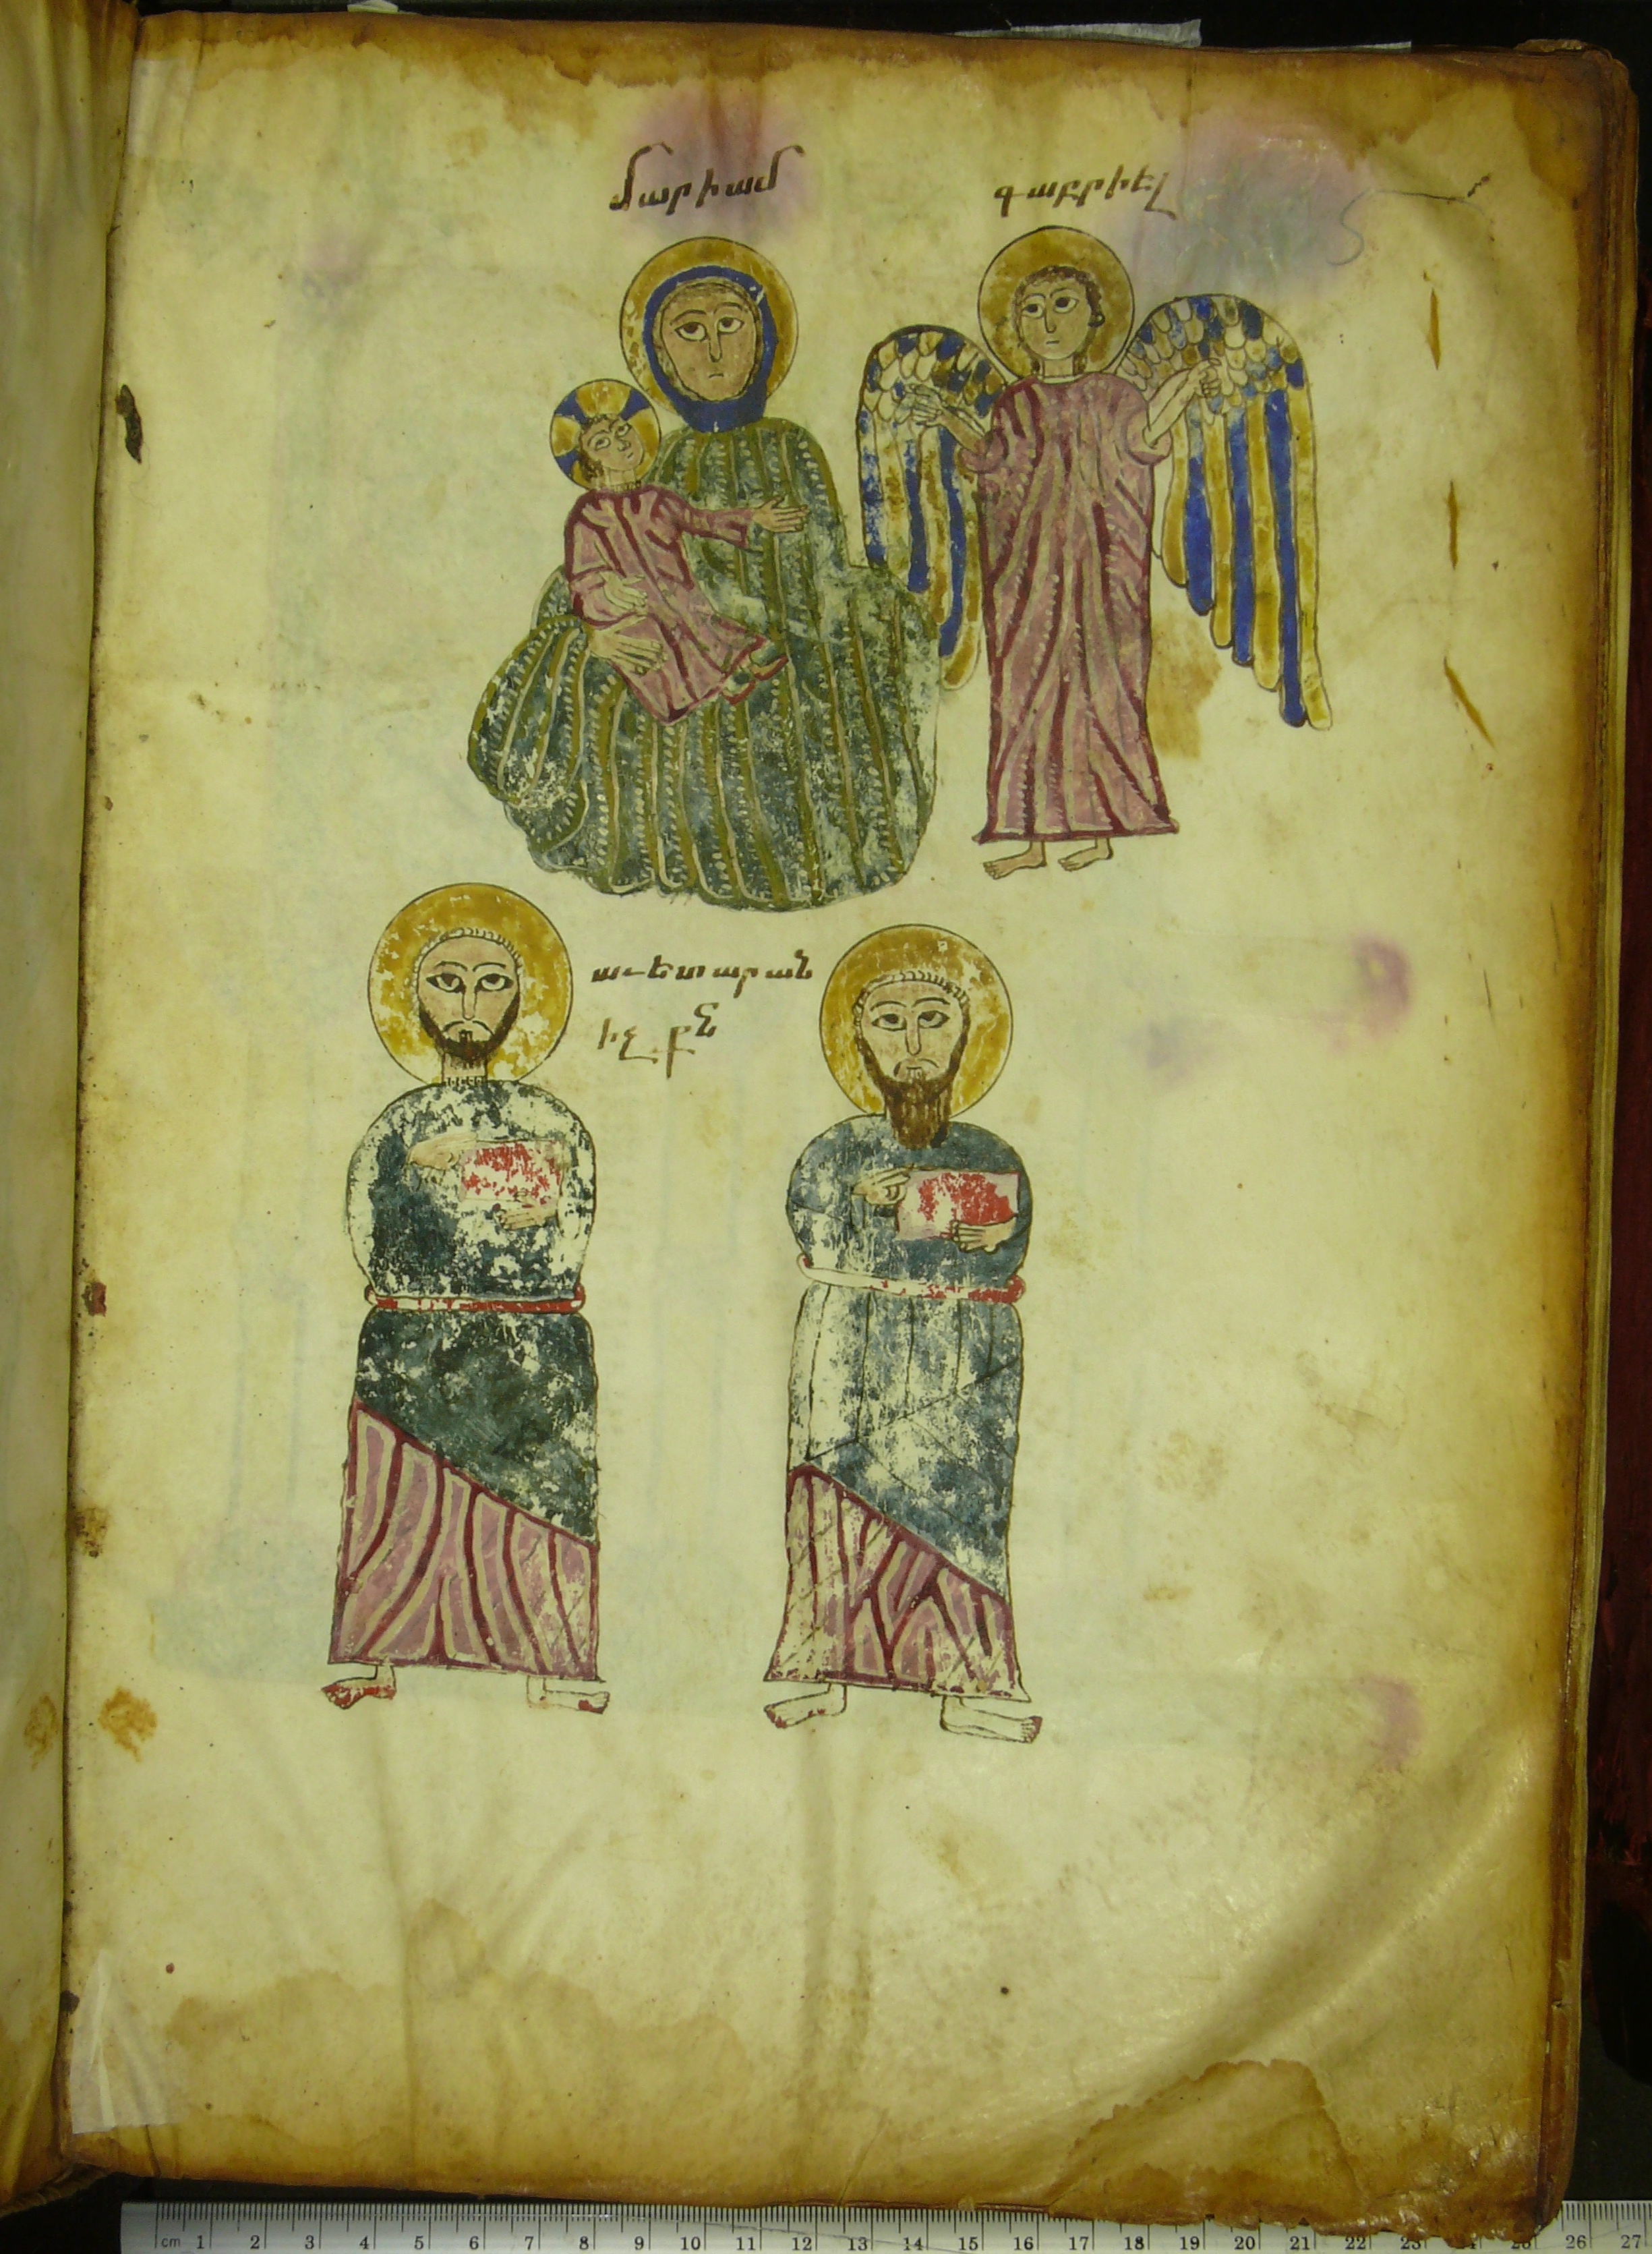 մարիամ
գաբրիէլ
աւետարան
իչ քն
cm 1 2 3 4 5 6 7 8 9 10 11 12 13 14 15 16 17 18 19 20 21 22 23 24 25 26 27